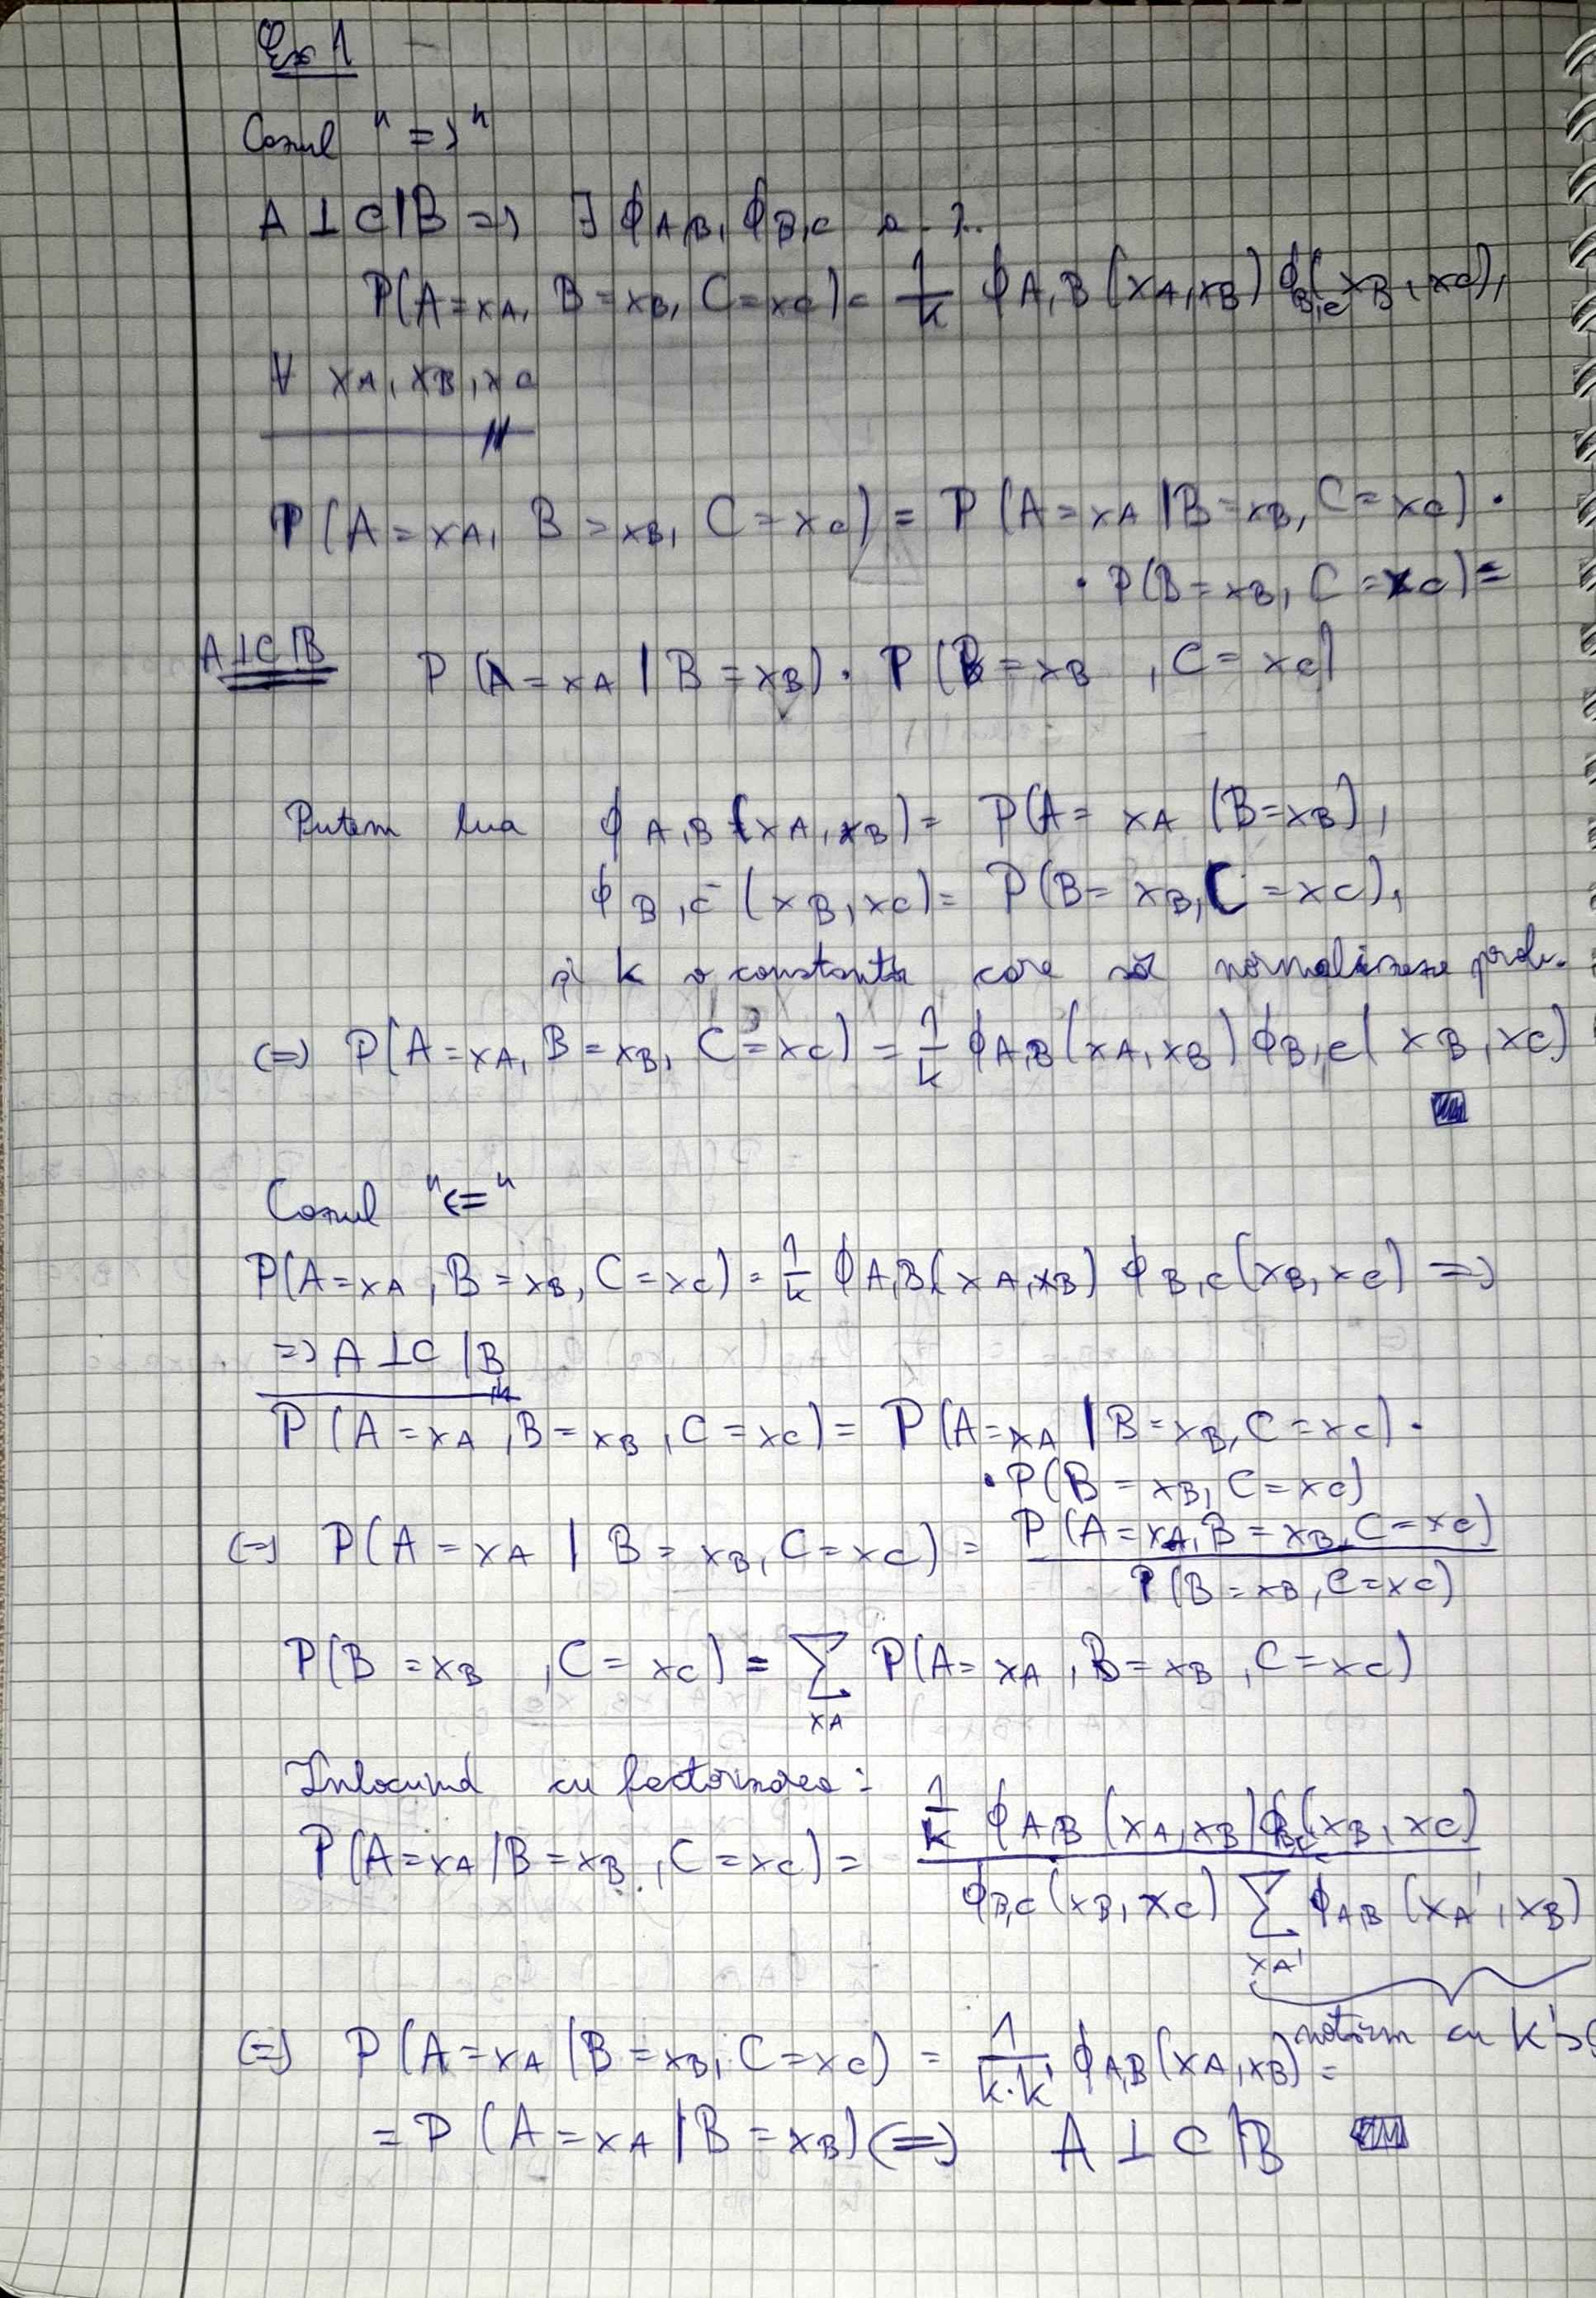 Ex 1
Cazul "=>"
A ⊥ C | B => ∃ ϕA,B, ϕB,C a. î.
P(A = xA, B = xB, C = xC) = 1/k ϕA,B (xA, xB) ϕB,C(xB, xC),
∀ xA, xB, xC
P(A = xA, B = xB, C = xC) = P(A = xA | B = xB, C = xC) ·
· P(B = xB, C = xC) =
A⊥C|B P(A = xA | B = xB) · P(B = xB, C = xC)
Putem lua ϕA,B (xA, xB) = P(A = xA | B = xB),
ϕB,C (xB, xC) = P(B = xB, C = xC),
și k o constantă care să normalizeze prob.
(=) P(A = xA, B = xB, C = xC) = 1/k ϕA,B(xA, xB) ϕB,C(xB, xC)
Cazul "<="
P(A = xA, B = xB, C = xC) = 1/k ϕA,B(xA, xB) ϕB,C(xB, xC) =>
=> A ⊥ C | B
P(A = xA, B = xB, C = xC) = P(A = xA | B = xB, C = xC) ·
· P(B = xB, C = xC)
(=) P(A = xA | B = xB, C = xC) = P(A = xA, B = xB, C = xC) / P(B = xB, C = xC)
P(B = xB, C = xC) = ∑xA P(A = xA, B = xB, C = xC)
Înlocuind cu factorizarea:
P(A = xA | B = xB, C = xC) = 1/k ϕA,B (xA, xB) ϕB,C(xB, xC) / ϕB,C(xB, xC) ∑xA' ϕA,B (xA', xB)
notăm cu k'
(=) P(A = xA | B = xB, C = xC) = 1/k·k' ϕA,B(xA, xB) =
= P(A = xA | B = xB) (=) A ⊥ C | B